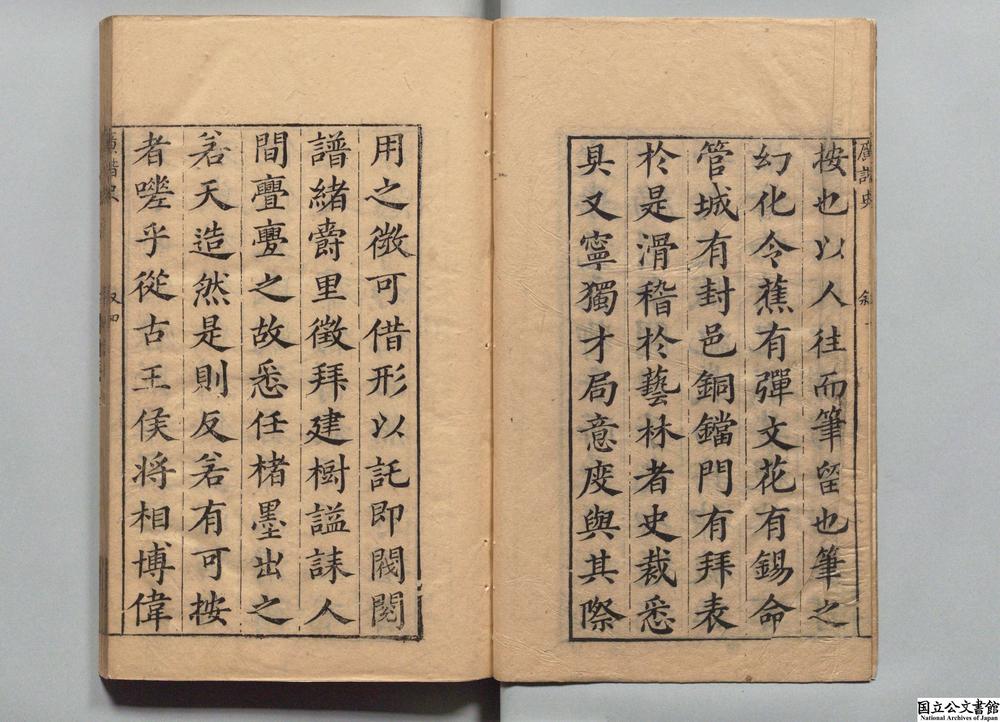 按也以人往而筆留也筆之
幻化令蕉有彈文花有錫命
管城有封邑銅鐺門有拜表
於是滑稽於藝林者史裁悉
具又寧獨才局意度與其際
用之徴可借形以託即閥閱
譜緒爵里徵拜建樹謚誄人
間亹亹之故悉任楮墨出之
若天造然是則反若有可按
者嗟乎從古王侯将相博偉
廣諧史
叙四
国立公文書館
National Archives of Japan